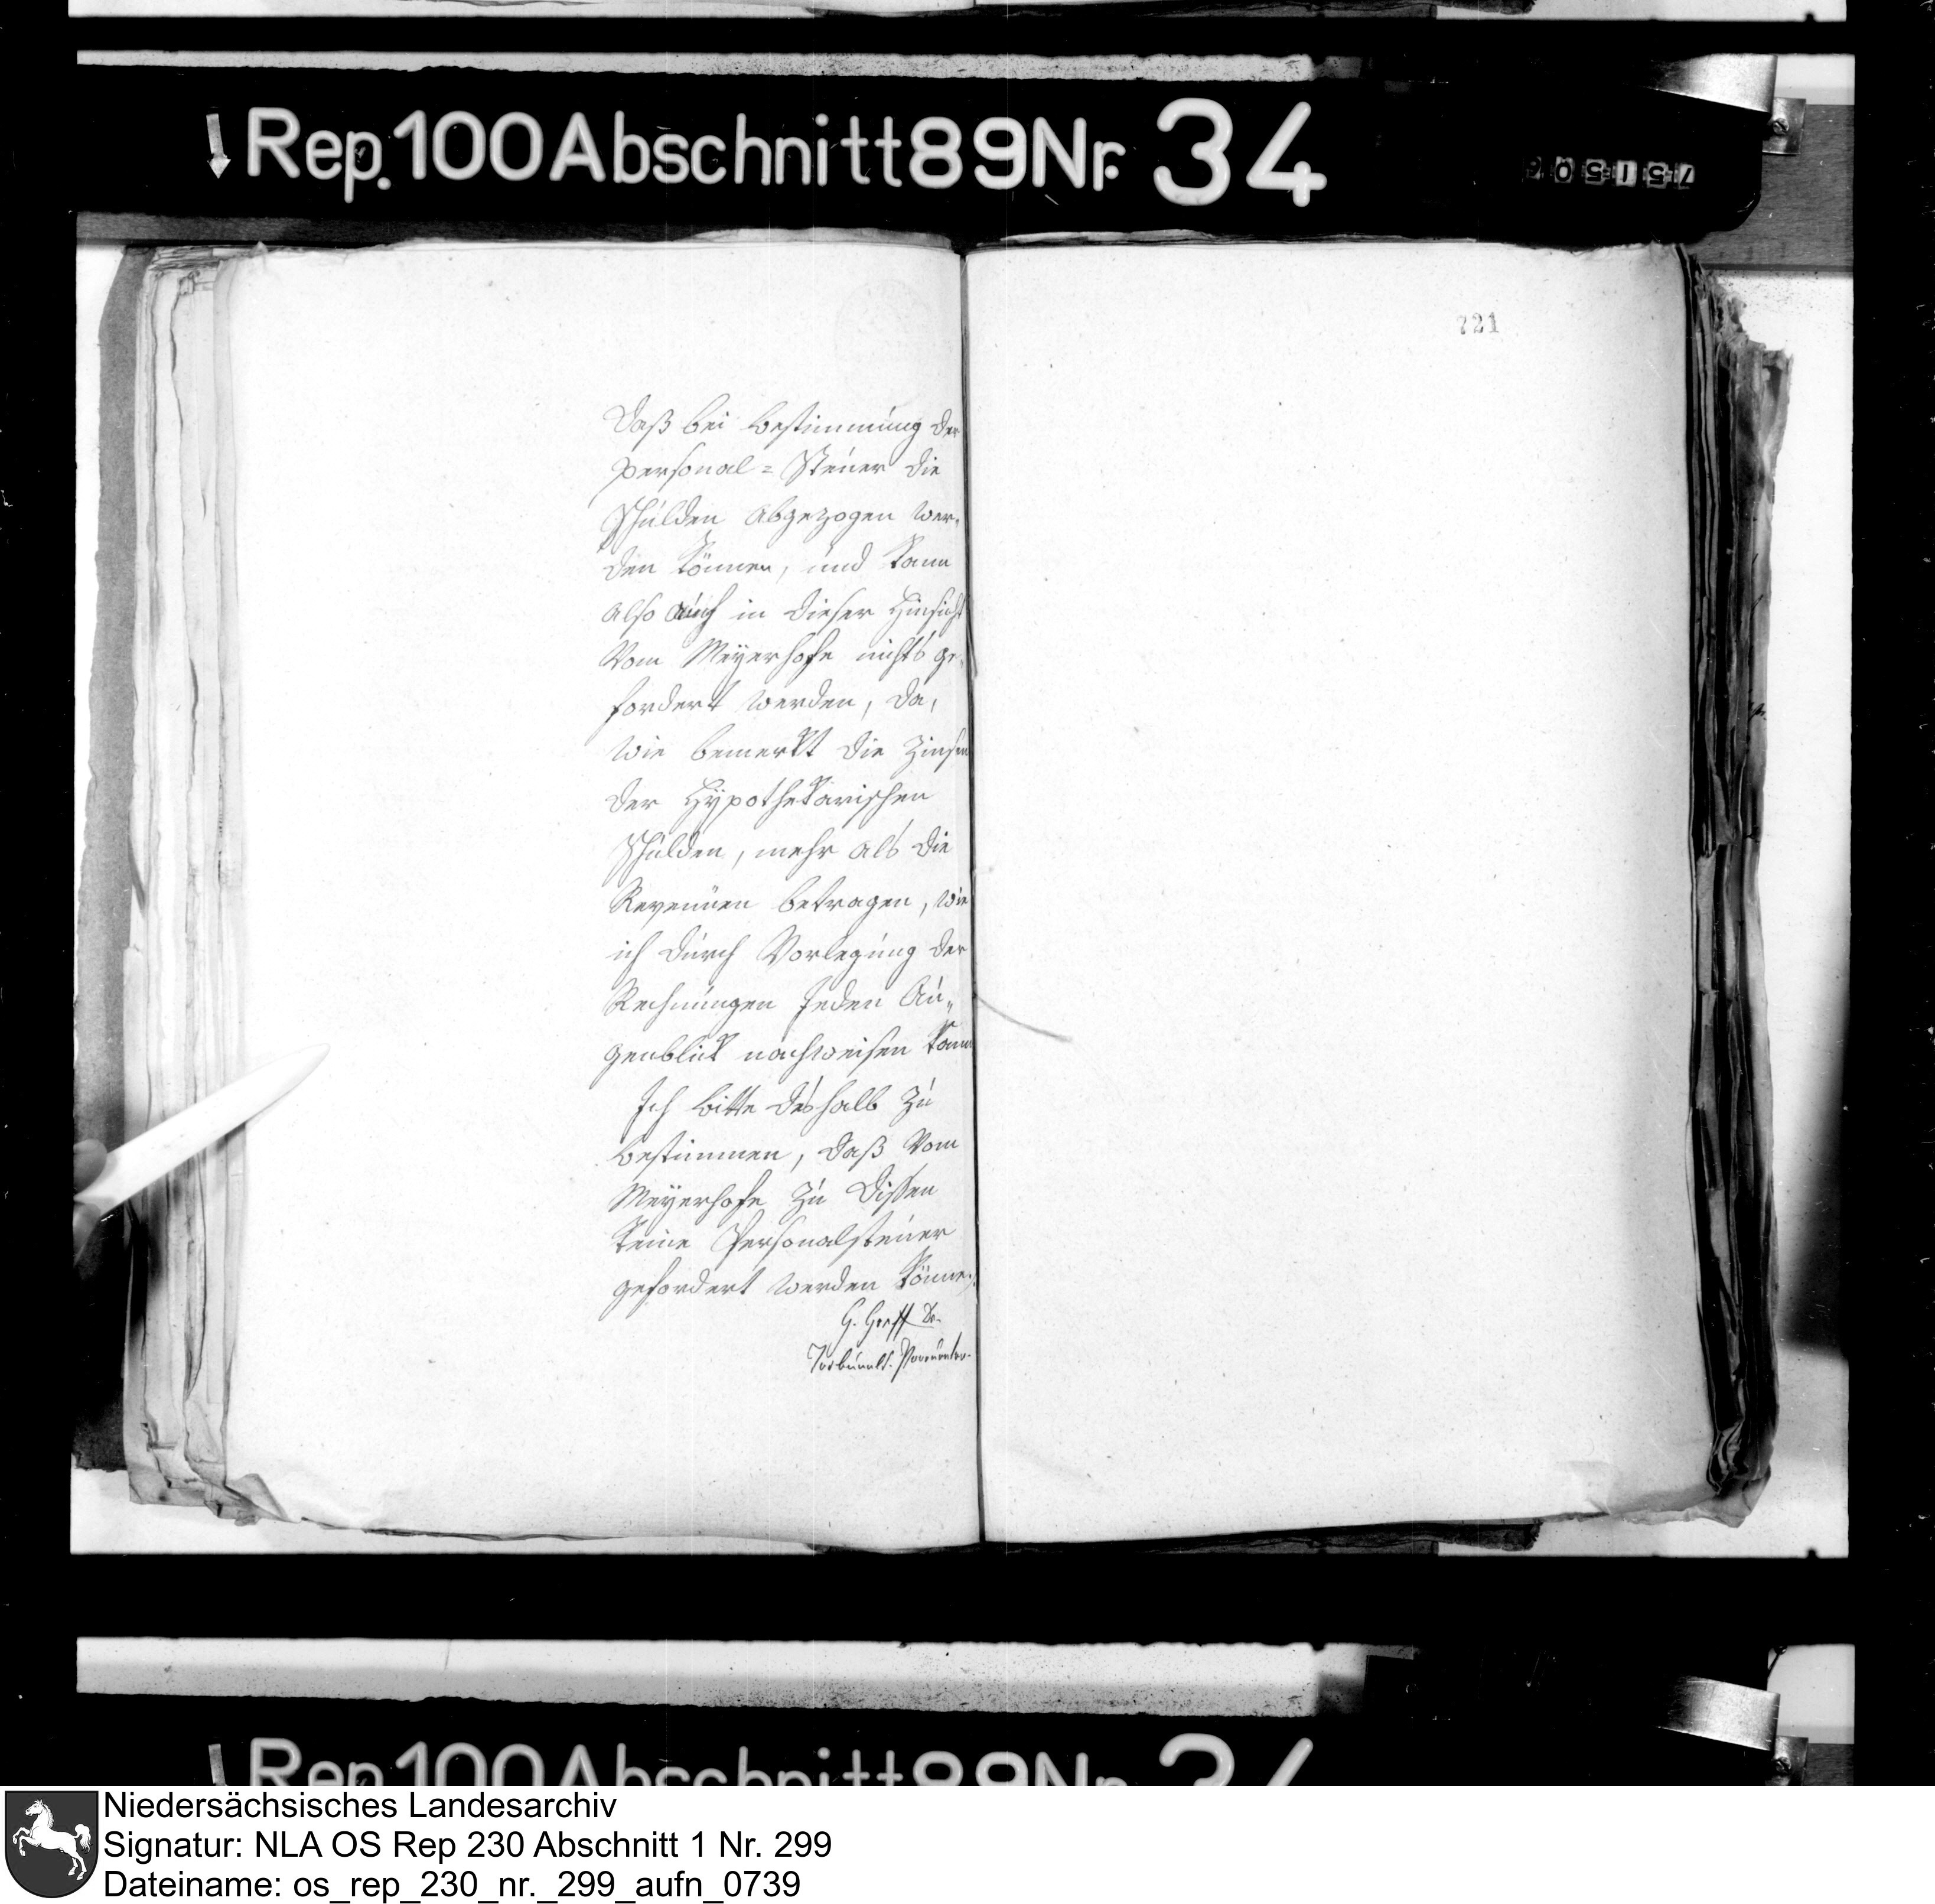 Rep. 100 Abschnitt 89 Nr. 34
721
Daß bei Bestimmung der
Personal = Steuer die
Schulden abgezogen wer,
den können, und kann
also auch in dieser Hinsicht
vom Meyerhofe nichts ge,
fordert werden, da,
wie bemerkt die Zinsen
der Hypothekarischen
Schulden, mehr als die
Revenüen betragen, wie
ich durch Vorlegung der
Rechnungen jeden Au,,
genblick nachweisen kann
Ich bitte deshalb zu
bestimmen, daß vom
Meyerhofe zu Dissen
keine Personalsteuer
gefordert werden könne.
G.
Rep. 100 Abschnitt 89 Nr. 34
Niedersächsisches Landesarchiv
Signatur: NLA OS Rep 230 Abschnitt 1 Nr. 299
Dateiname: os_rep_230_nr._299_aufn_0739